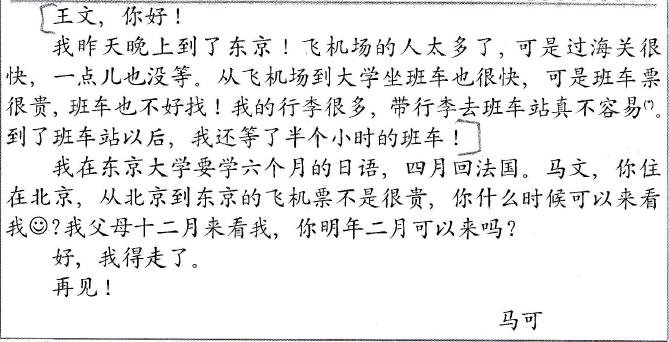 王文，你好！
我昨天晚上到了东京！飞机场的人太多了，可是过海关很
快，一点儿也没等。从飞机场到大学坐班车也很快，可是班车票
很贵，班车也不好找！我的行李很多，带行李去班车站真不容易⁽¹⁾。
到了班车站以后，我还等了半个小时的班车！
我在东京大学要学六个月的日语，四月回法国。马文，你住
在北京，从北京到东京的飞机票不是很贵，你什么时候可以来看
我☺?我父母十二月来看我，你明年二月可以来吗？
好，我得走了。
再见！
马可